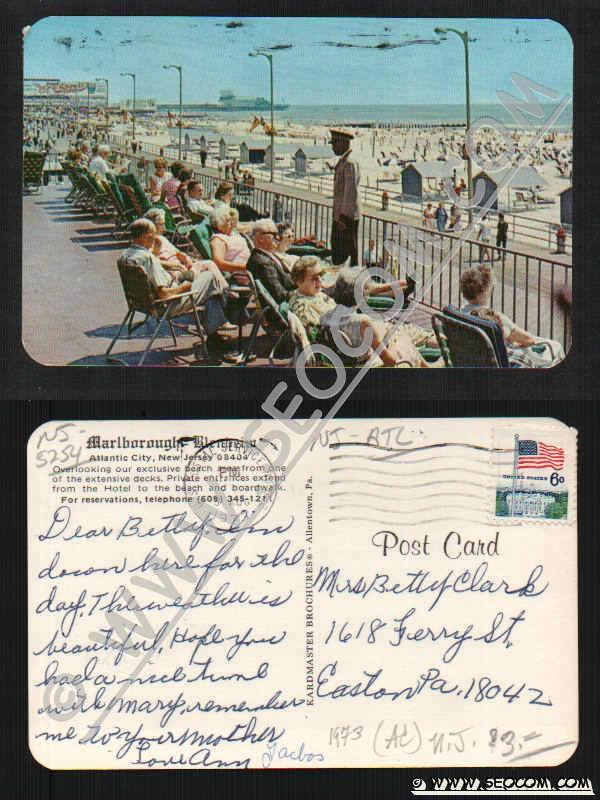 © WWW.SEOCOM.COM
NJ-
5254
Marlborough-Blenheim
Atlantic City, New Jersey 08404
Overlooking our exclusive beach area from one
of the extensive decks. Private entrances extend
from the Hotel to the beach and boardwalk.
For reservations, telephone (609) 345-1211
Dear Betty, Am
down here for the
day. The weather is
beautiful. Hope you
had a nice time
with Mary, remember
me to your Mother
Love Ann
Jacbos
KARDMASTER BROCHURES® - Allentown, Pa.
NJ-ATL
SERVICE
UNITED STATES
6¢
Post Card
Mrs Betty Clark
1618 Ferry St.
Easton Pa. 18042
1973 (AC) N.J. 3.-
© WWW.SEOCOM.COM